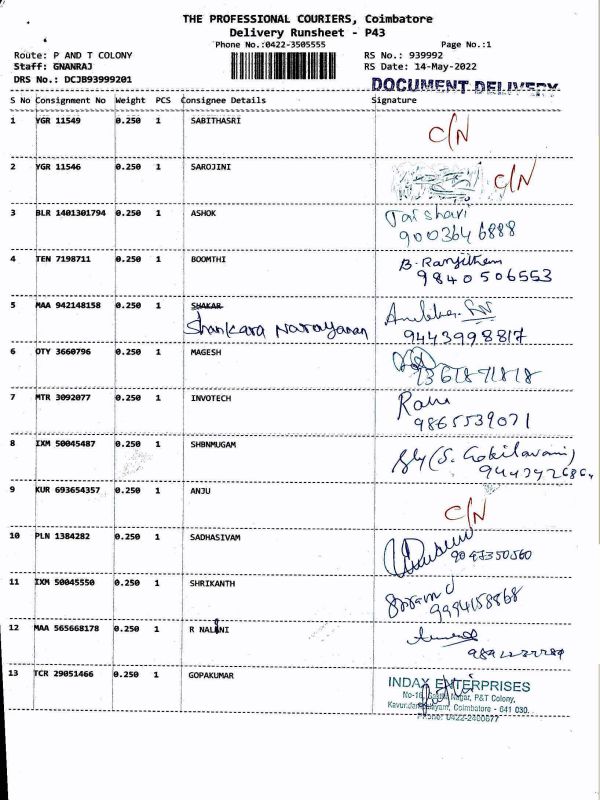 THE PROFESSIONAL COURIERS, Coimbatore
Delivery Runsheet - P43
Phone No.:0422-3505555 Page No.:1
Route: P AND T COLONY RS No.: 939992
Staff: GNANRAJ RS Date: 14-May-2022
DRS No.: DCJB93999201 DOCUMENT DELIVERY
S No Consignment No Weight PCS Consignee Details Signature
1 YGR 11549 0.250 1 SABITHASRI C/N
2 YGR 11546 0.250 1 SAROJINI C/N
3 BLR 1401301794 0.250 1 ASHOK
9003646888
4 TEN 7198711 0.250 1 BOOMTHI B. Ranjitham
9840506553
5 MAA 942148158 0.250 1 SHAKAR
Shankara Narayanan 9443998817
6 OTY 3660796 0.250 1 MAGESH
7 MTR 3092077 0.250 1 INVOTECH
9865539071
8 IXM 50045487 0.250 1 SHBNMUGAM (S. Gokilavani)
9 KUR 693654357 0.250 1 ANJU C/N
10 PLN 1384282 0.250 1 SADHASIVAM
11 IXM 50045550 0.250 1 SHRIKANTH
9994158868
12 MAA 565668178 0.250 1 R NALINI
13 TCR 29051466 0.250 1 GOPAKUMAR
INDAX ENTERPRISES
Nagar, P&T Colony,
Coimbatore - 641 030.
Phone: 0422-2400677